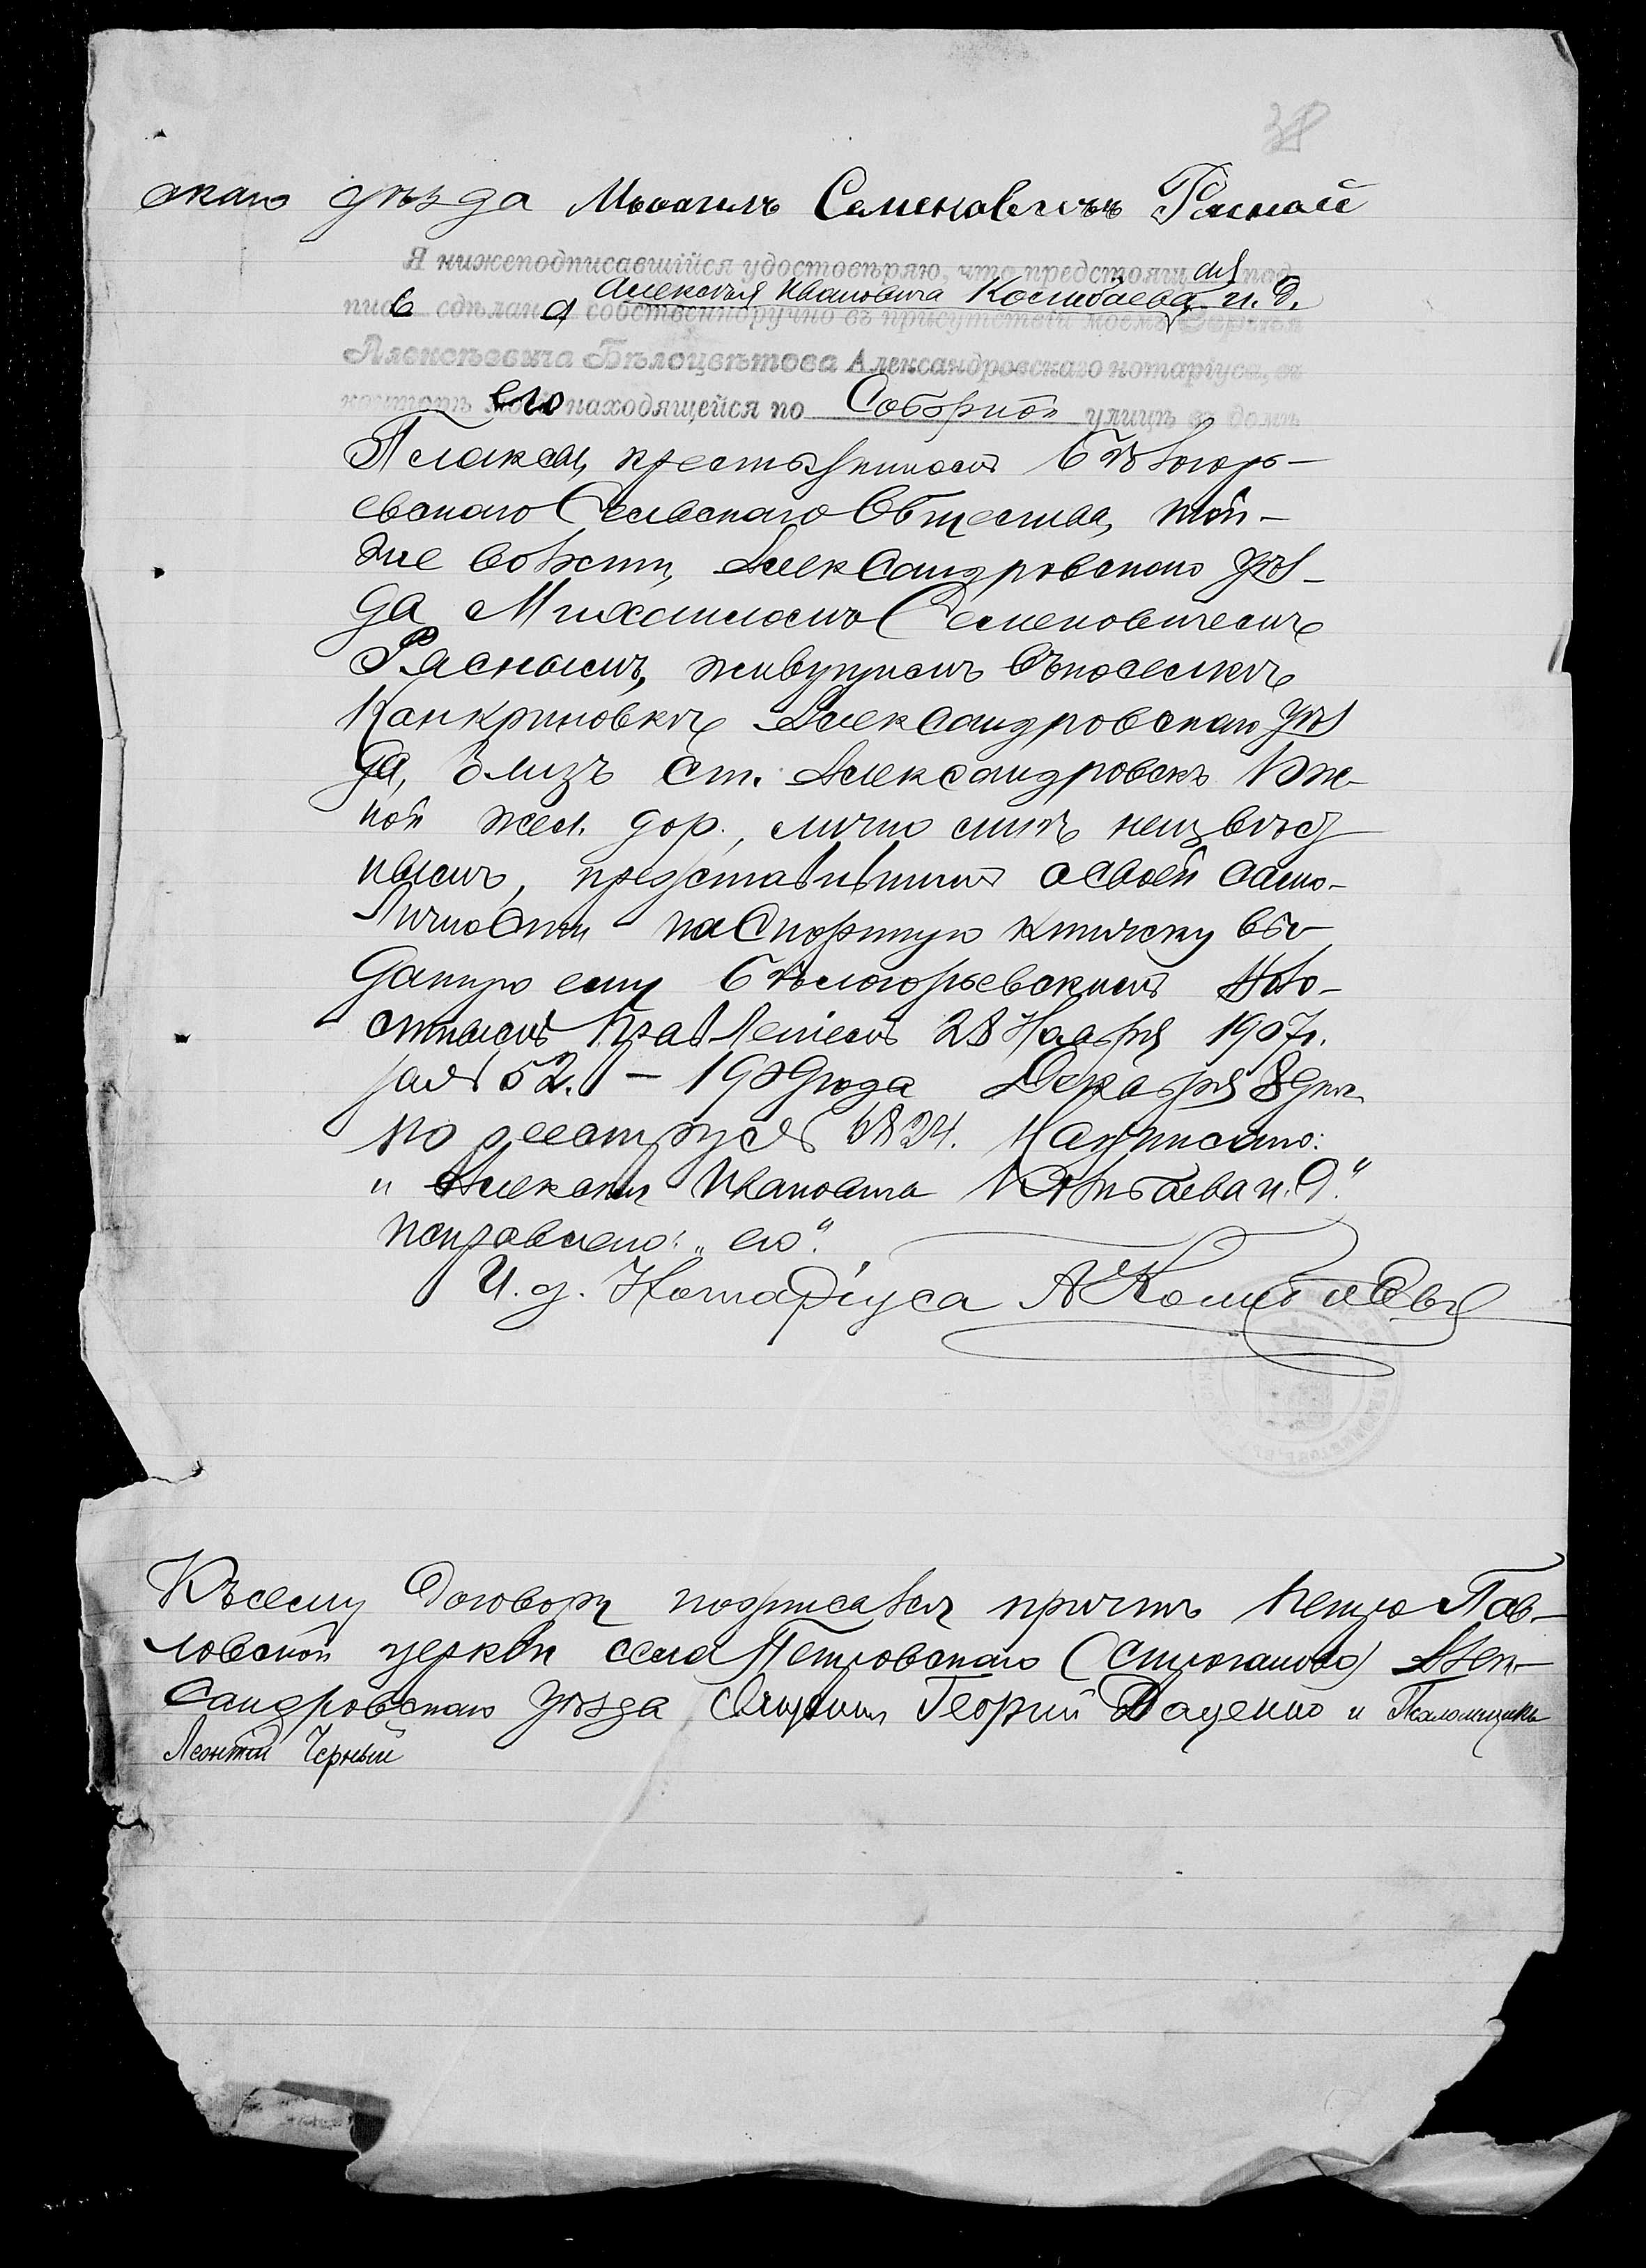 38
скаго уѣзда Михаилъ Семеновичъ Рясной
Я нижеподписавшійся удостовѣряю, что предстоящая над
пись сдѣлана собственноручно въ присутствіи моемъ Сергѣя
Алексѣевича Бѣлоцвѣтова Александровскаго нотаріуса, въ
Алексѣя Ивановича Колибаева, и. д.
конторѣ его находящейся по Соборной улицѣ въ домѣ
Плакса, крестьяниномъ Бѣлогорь-
евскаго Сельскаго Общества, той-
же волости, Александровскаго уѣз-
да Михаиломъ Семеновичемъ
Ряснымъ, живущимъ въ поселкѣ
Канкриновкѣ Александровскаго уѣз
да, близъ ст. Александровскъ Юж-
ной жел. дор., лично мнѣ неизвѣст
нымъ, представившимъ о своей само-
личности паспортную книжку вы-
данную ему Бѣлогорьевскимъ Воло-
стнымъ Правленіемъ 28 Ноября 1907 г.
за № 52. – 1909 года Декабря 8 дня.
По реестру № 6824. Надписано:
„Алексѣя Ивановича Колибаева и. д."
исправлено: „его".
И. д. Нотаріуса А Колибаевъ
Къ сему договору подписался причтъ Петро-Пав-
ловской церкви села Петровскаго (Строганово) Алек-
сандровскаго уѣзда Священ Георгій Даценко и Псаломщикъ
Леонтій Черный